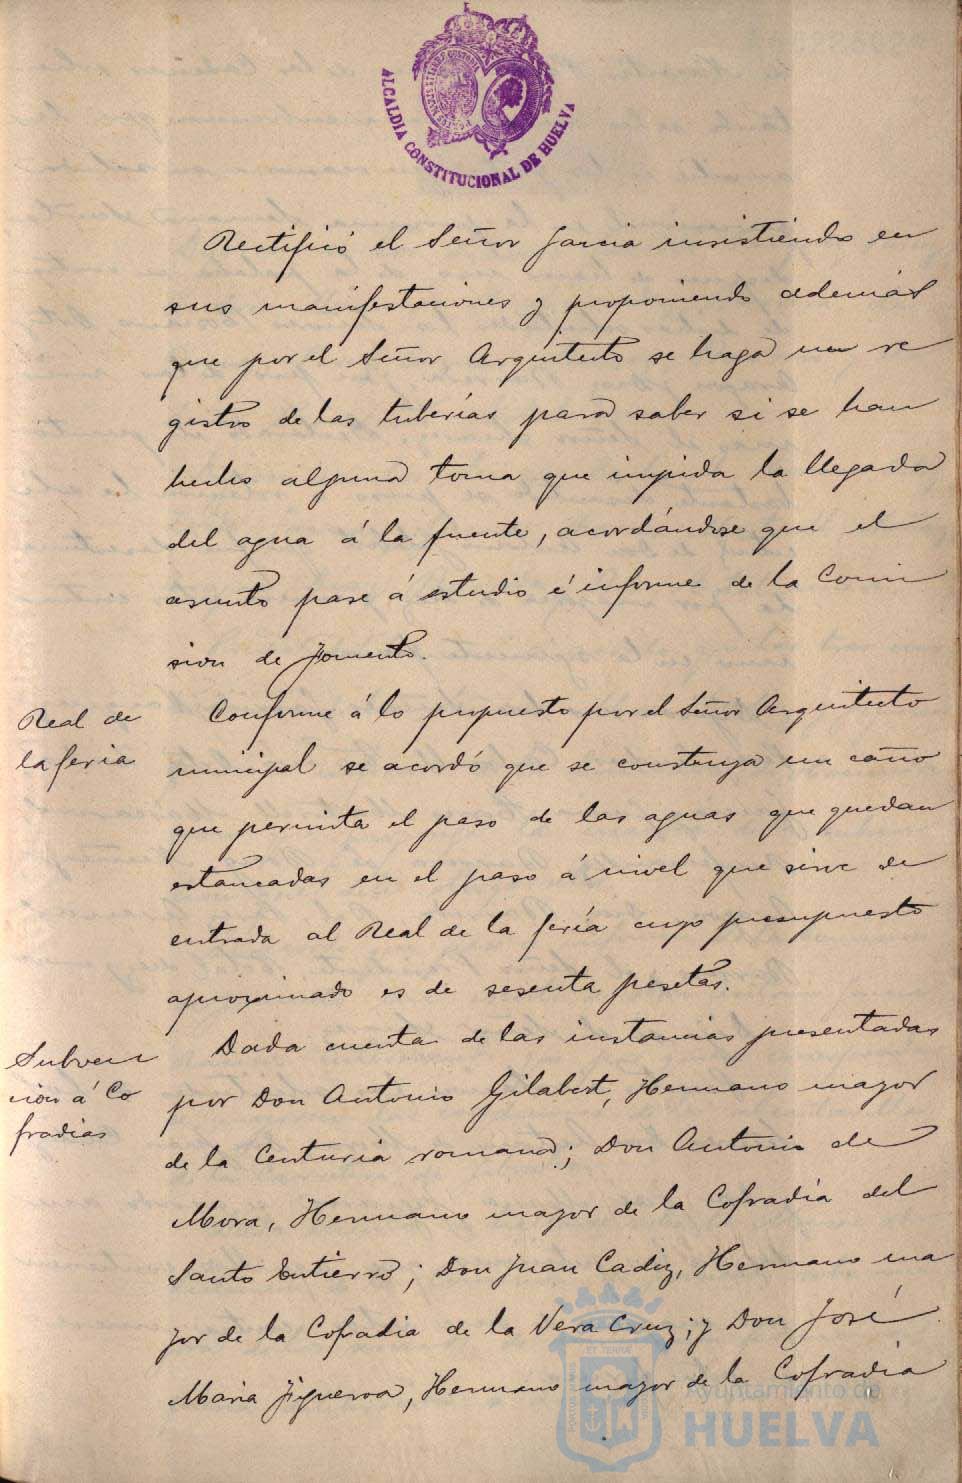 ALCALDIA CONSTITUCIONAL DE HUELVA
Rectificó el Señor Garcia insistiendo en
sus manifestaciones y proponiendo además
que por el Señor Arquitecto se haga un re
gistro de las tuberías para saber si se han
hecho alguna toma que impida la llegada
del agua á la fuente, acordándose que el
asunto pase á estudio é informe de la Comi
sion de Fomento.
Real de
la feria
Conforme á lo propuesto por el Señor Arquitecto
municipal se acordó que se construya un caño
que permita el paso de las aguas que quedan
estancadas en el paso á nivel que sirve de
entrada al Real de la fería cuyo presupuesto
aproximado es de sesenta pesetas.
Subven
ción á Co
fradias
Dada cuenta de las instancias presentadas
por Don Antonio Gilabert, Hermano mayor
de la Centuria romana; Don Antonio de
Mora, Hermano mayor de la Cofradía del
Santo Entierro; Don Juan Cadiz, Hermano ma
yor de la Cofradia de la Vera Cruz; y Don José
Maria Figueroa, Hermano mayor de la Cofradía
Ayuntamiento de
HUELVA